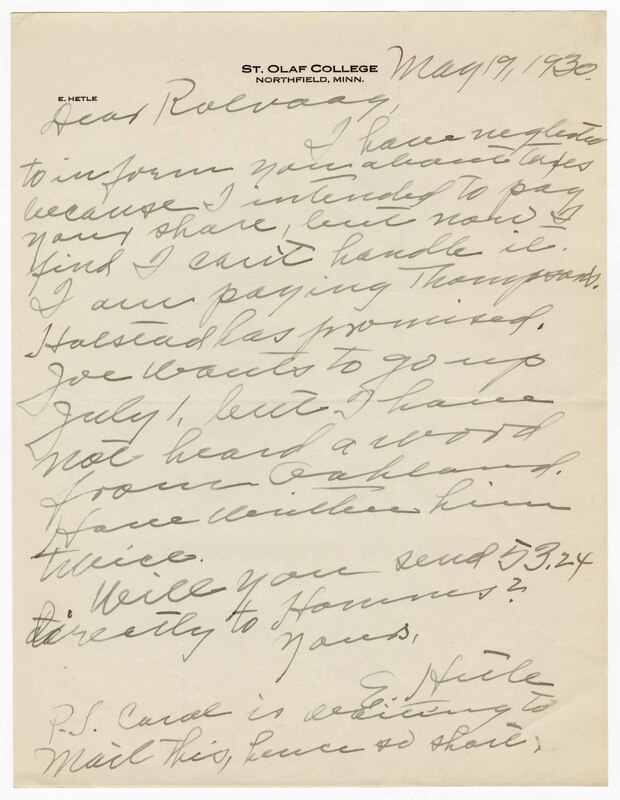 ST. OLAF COLLEGE
NORTHFIELD, MINN.
May 19, 1930.
E. HETLE
Dear Rolvaag,
I have neglected
to inform you about taxes
because I intended to pay
your share, but now I
find I can't handle it.
I am paying Thompson's.
Holstad has promised.
Joe wants to go up
July 1, but I have
not heard a word
from Oakland.
Have written him
twice.
Will you send 53.24
directly to Hommes?
Yours,
E. Hetle
P.S. Carol is waiting to
mail this, hence so short.